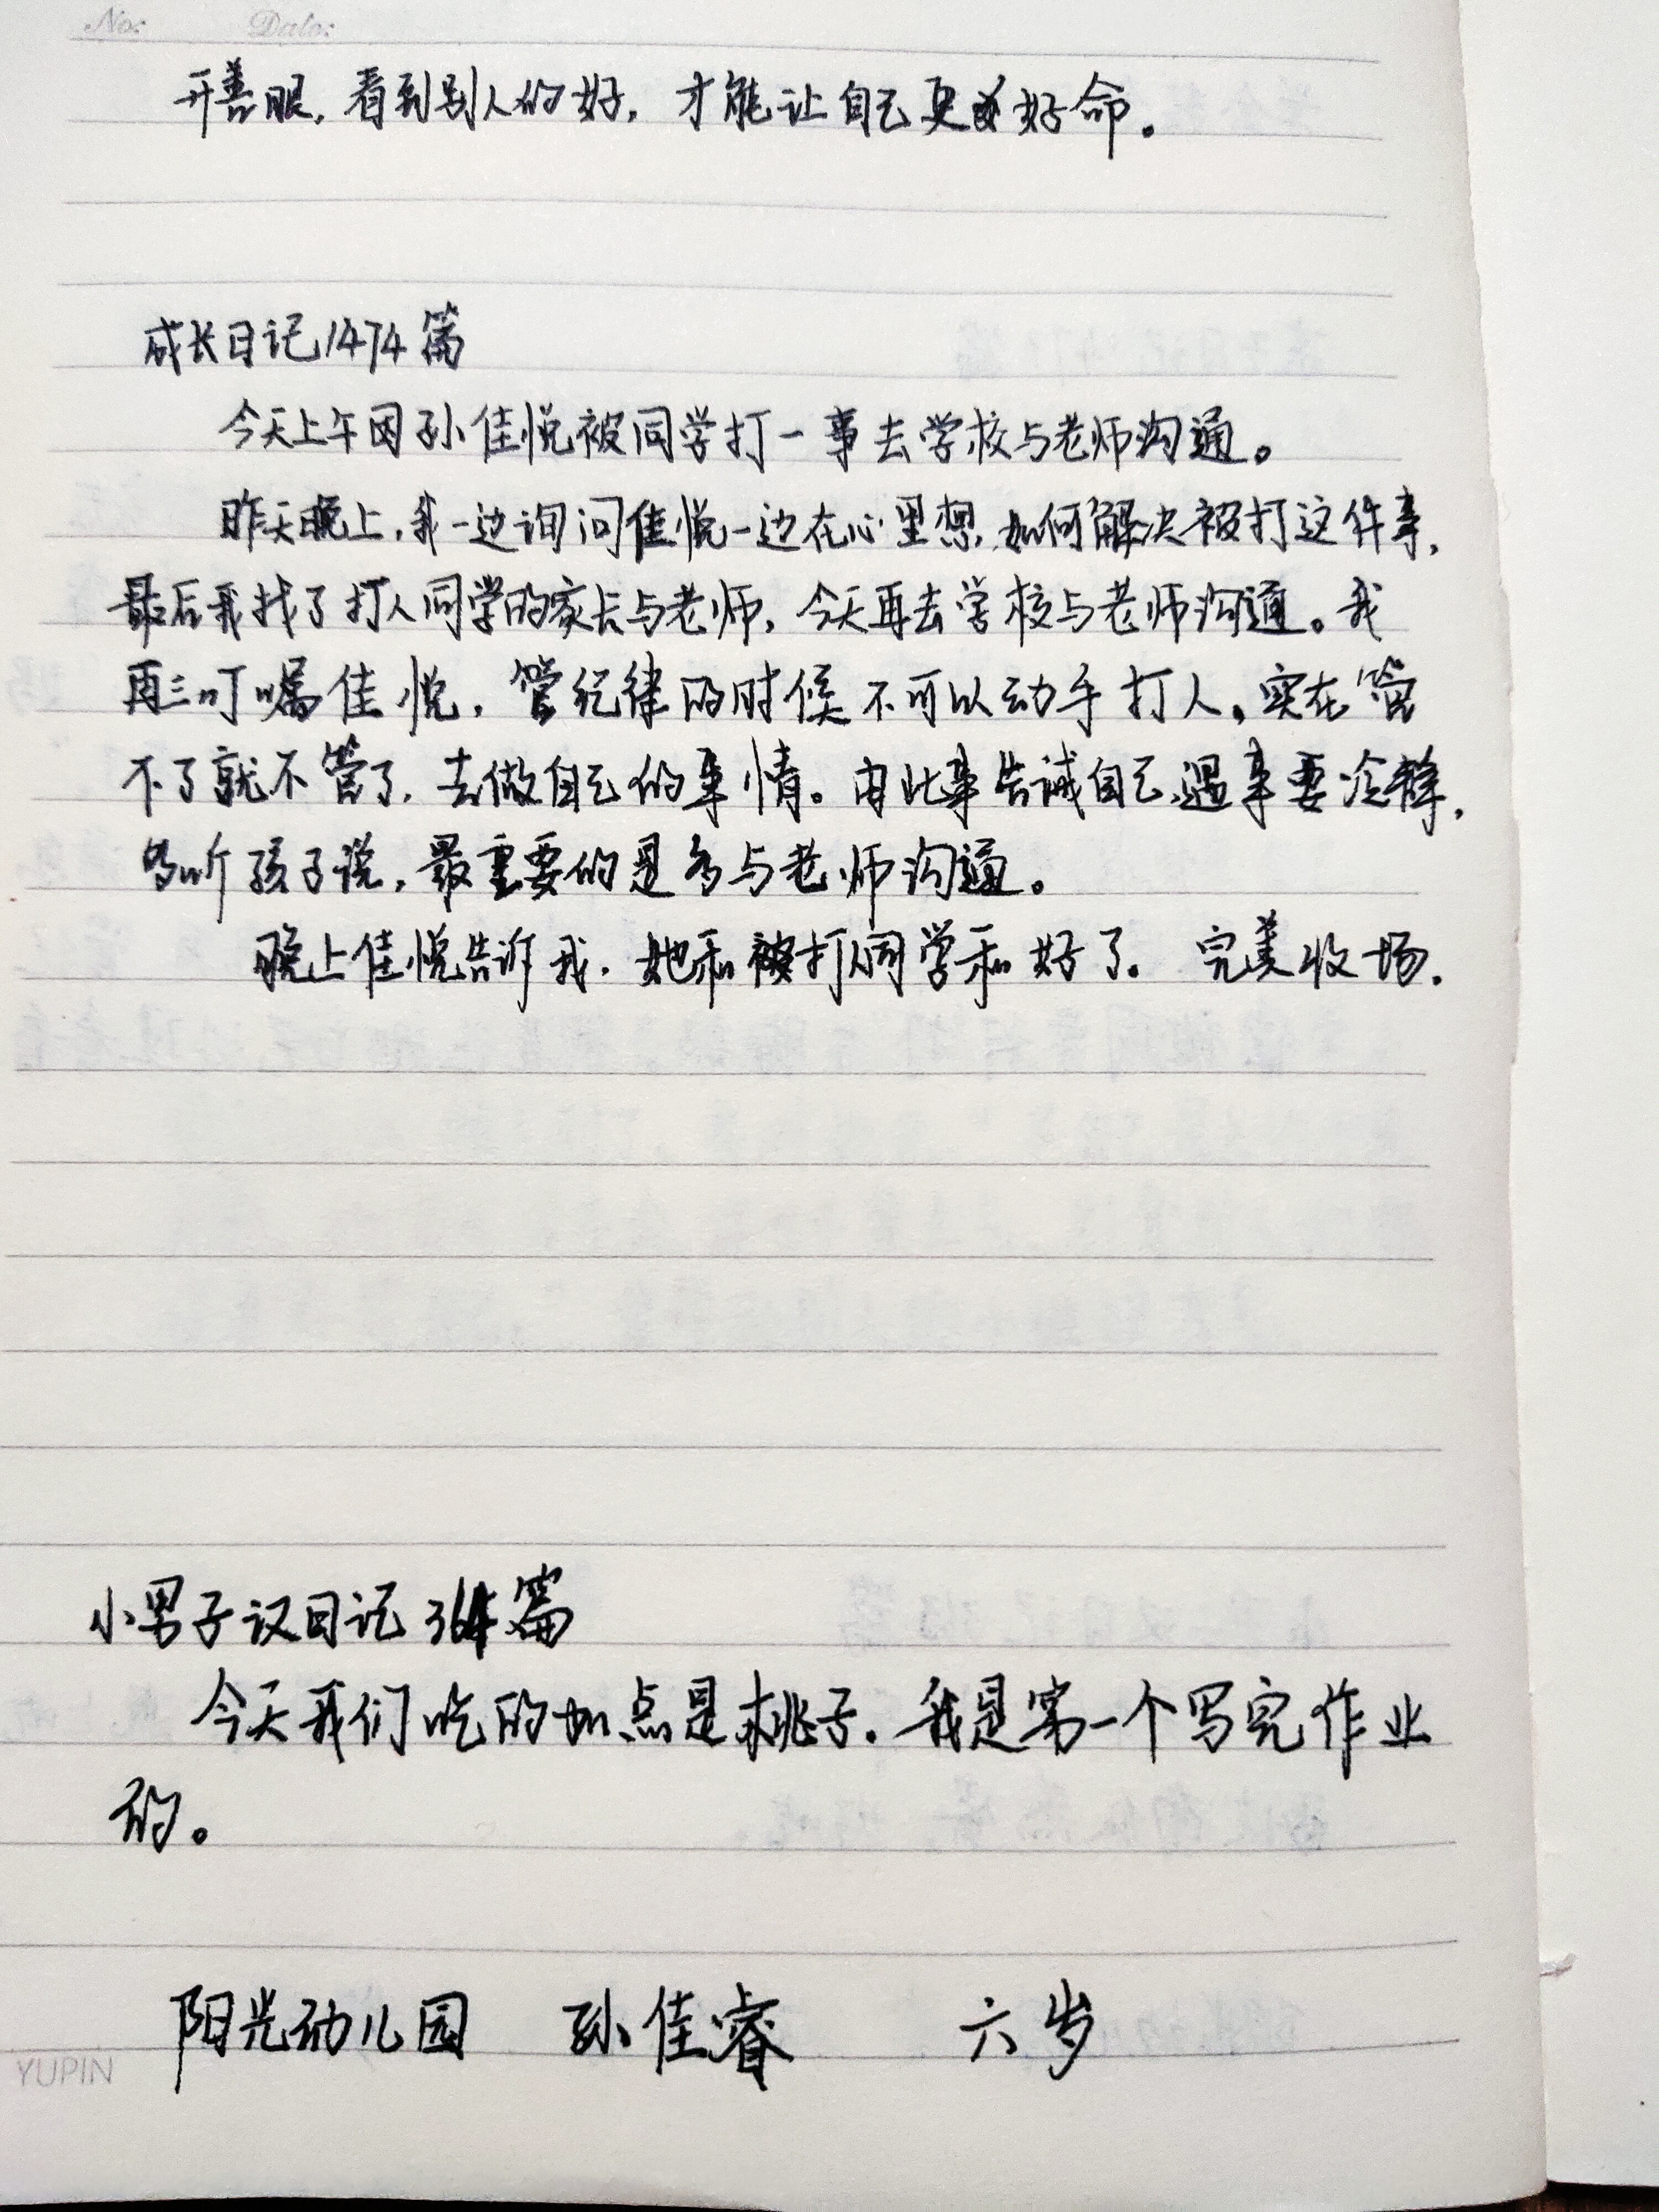 No:
Date:
开善眼，看到别人的好，才能让自己更好命。
成长日记1474篇
今天上午因孙佳悦被同学打一事去学校与老师沟通。
昨天晚上，我一边询问佳悦一边在心里想，如何解决被打这件事，
最后我找了打人同学的家长与老师，今天再去学校与老师沟通。我
再三叮嘱佳悦，管纪律的时候不可以动手打人，实在管
不了就不管了，去做自己的事情。由此事告诫自己，遇事要冷静，
多听孩子说，最重要的是多与老师沟通。
晚上佳悦告诉我，她和打人同学和好了。完美收场.
小男子汉日记364篇
今天我们吃的加点是桃子。我是第一个写完作业
的。
阳光幼儿园 孙佳睿 六岁
YUPIN